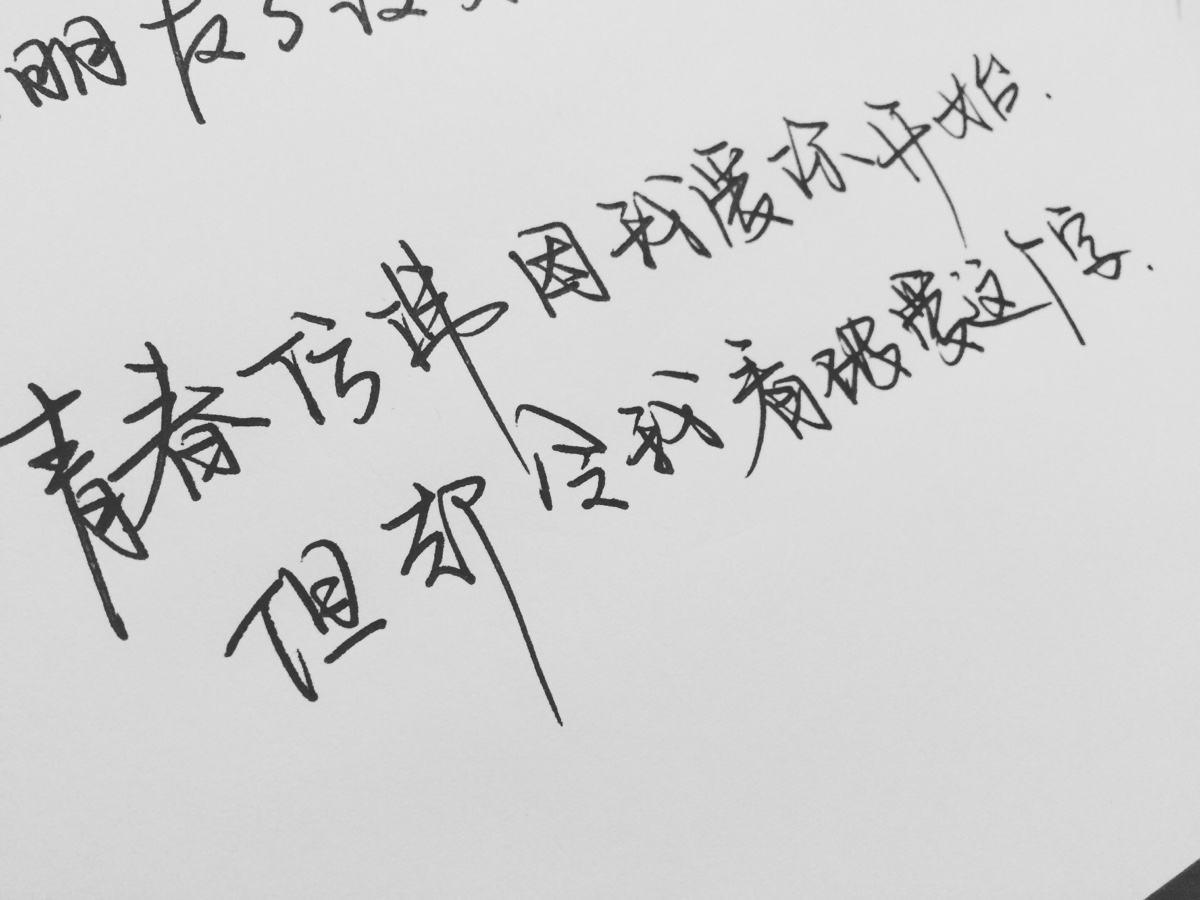 青春仿佛因我爱你开始.
但却令我看破爱这个字.